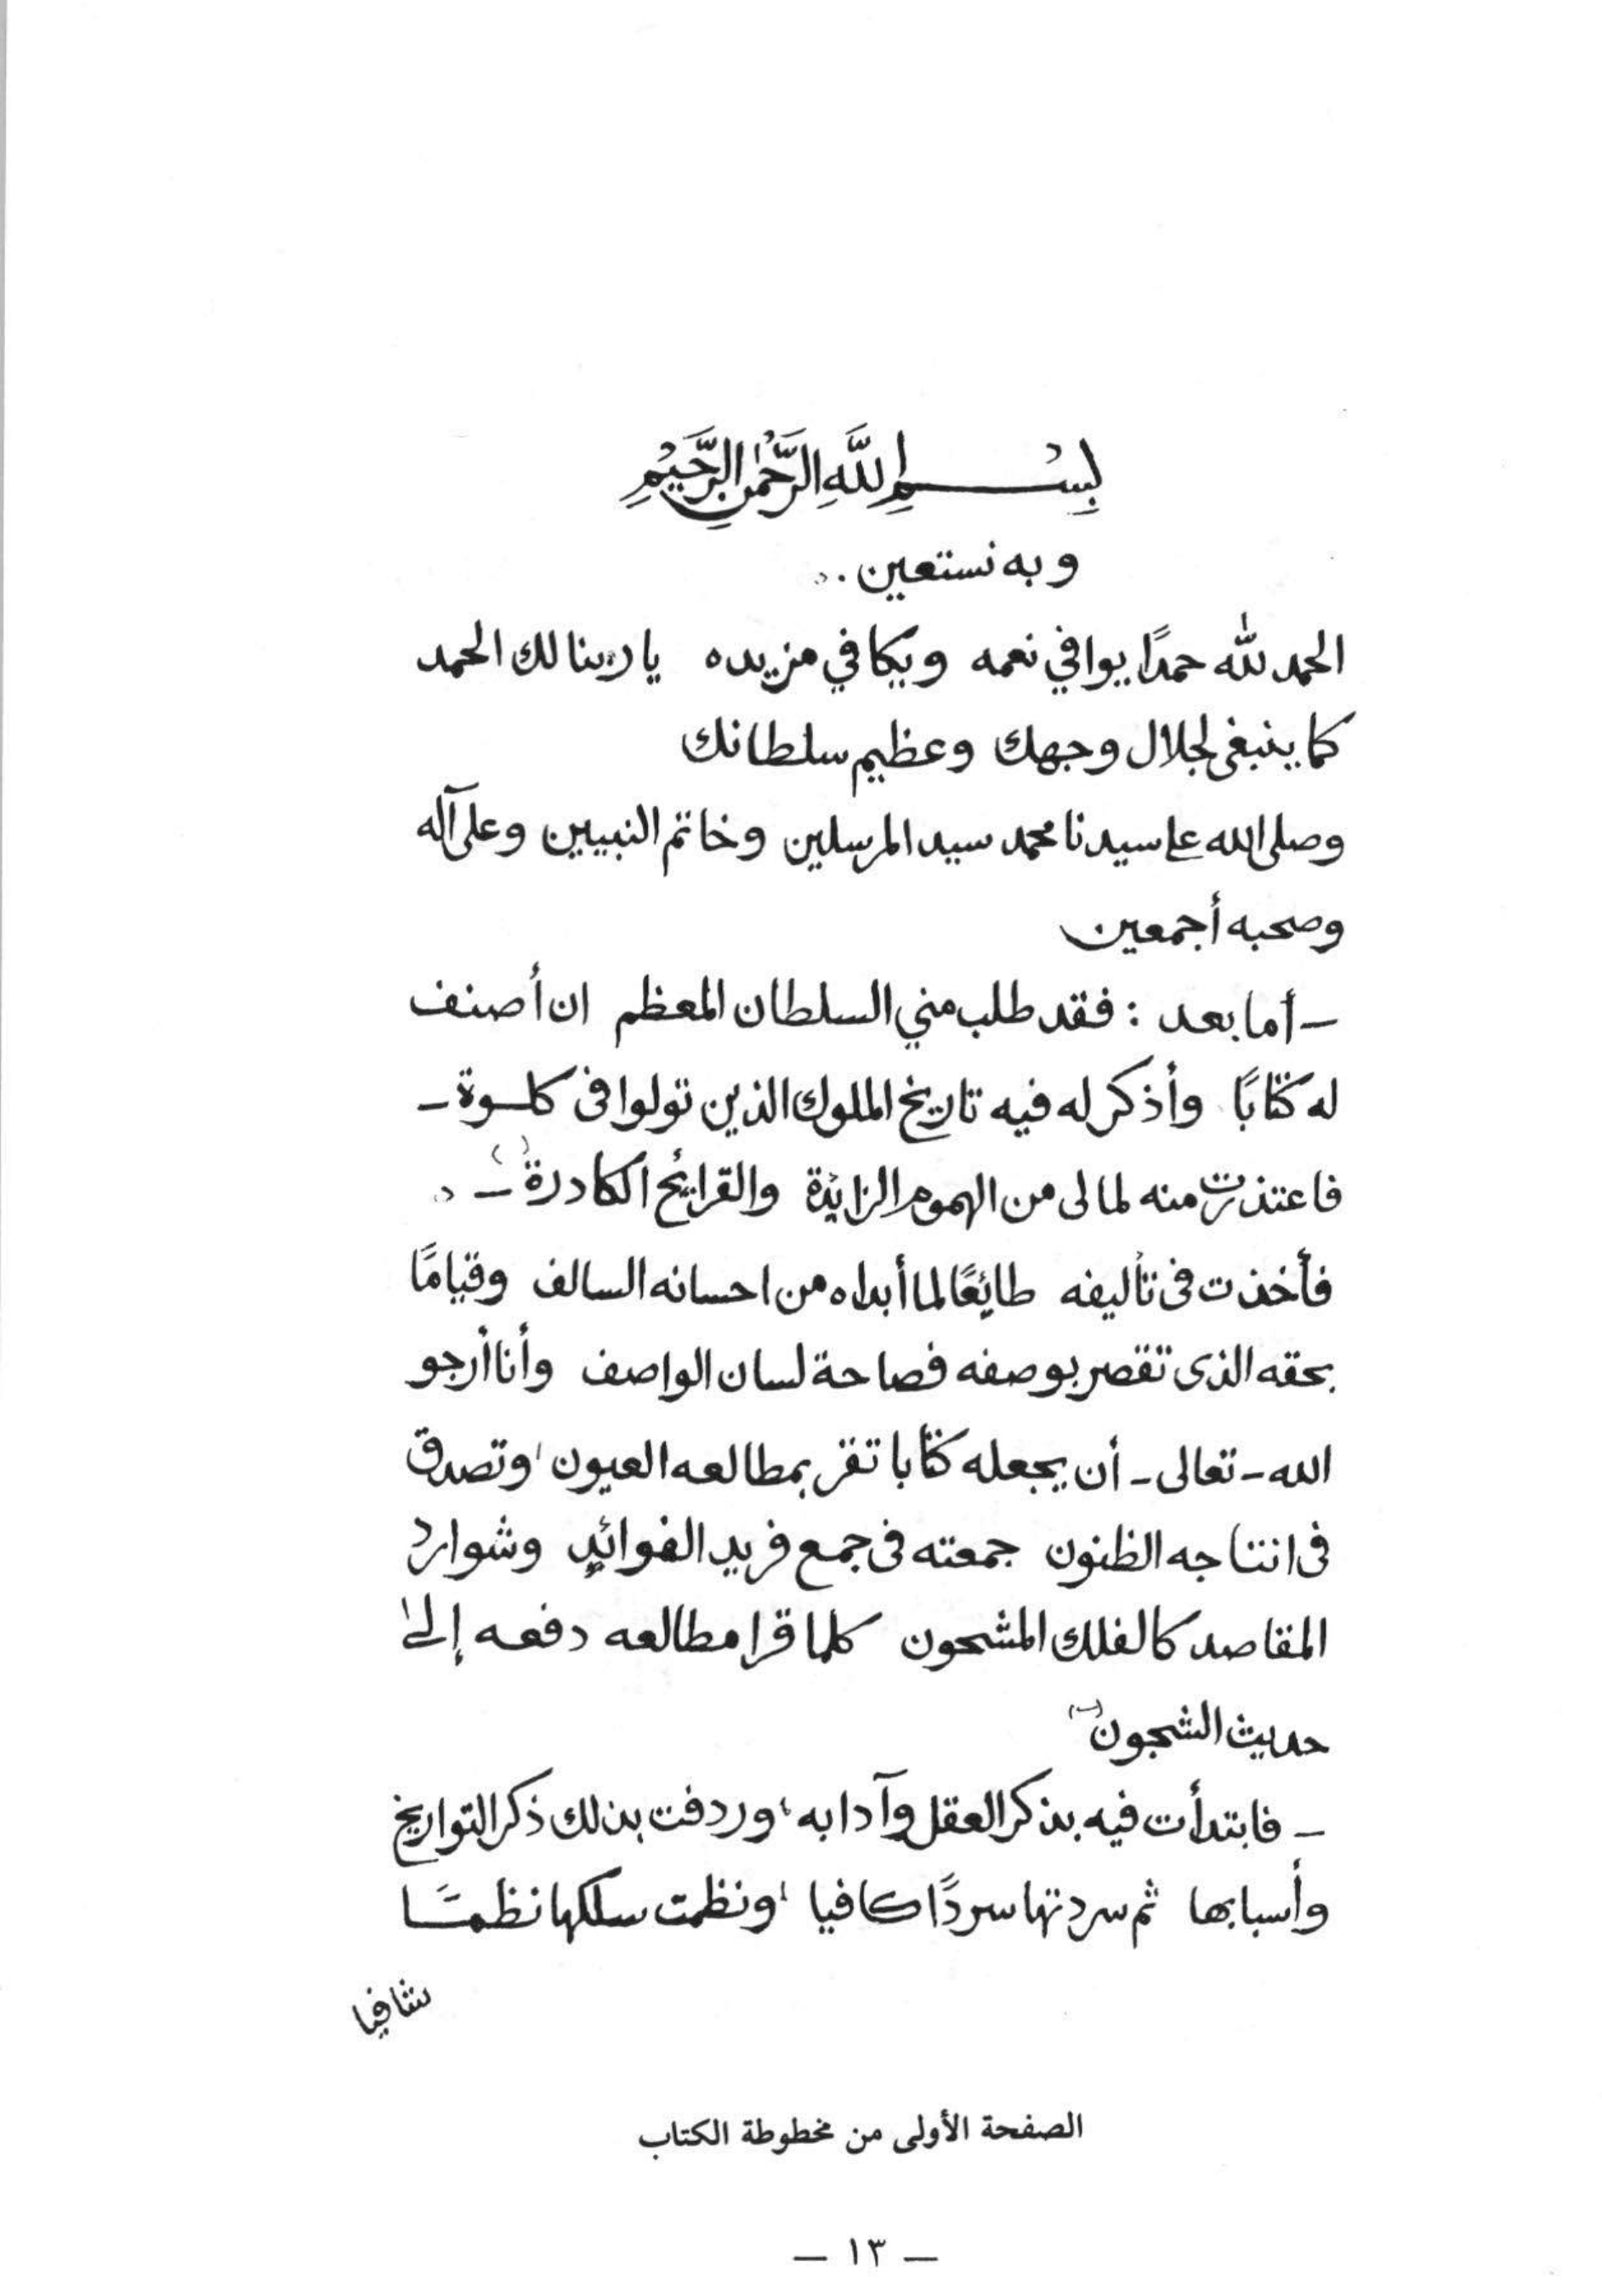 بِسْمِ اللَّهِ الرَّحْمٰنِ الرَّحِيْمِ
وبه نستعين ..
الحمد لله حمدًا يوافي نعمه ويكافي مزيده يا ربنا لك الحمد
كما ينبغى لجلال وجهك وعظيم سلطانك
وصلى الله على سيدنا محمد سيد المرسلين وخاتم النبيين وعلى آله
وصحبه أجمعين
– أما بعد : فقد طلب مني السلطان المعظم ان أصنف
له كتابًا وأذكر له فيه تاريخ الملوك الذين تولوا فى كلوة –
فاعتذرت منه لما لى من الهموم الزايدة والقرايح الكادرة –
فأخذت فى تأليفه طائعًا لما أبداه من احسانه السالف وقيامًا
بحقه الذى تقصر بوصفه فصاحة لسان الواصف وأنا أرجو
الله – تعالى – أن يجعله كتابا تقر بمطالعه العيون، وتصدق
فى انتاجه الظنون جمعته فى جمع فريد الفوائد وشوارد
المقاصد كالفلك المشحون كلما قرا مطالعه دفعه إلى
حديث الشجون
– فابتدأت فيه بذكر العقل وآدابه، وردفت بذلك ذكر التواريخ
وأسبابها ثم سردتها سردًا كافيا، ونظمت سلكها نظمًا
شافيا
الصفحة الأولى من مخطوطة الكتاب
– ١٣ –